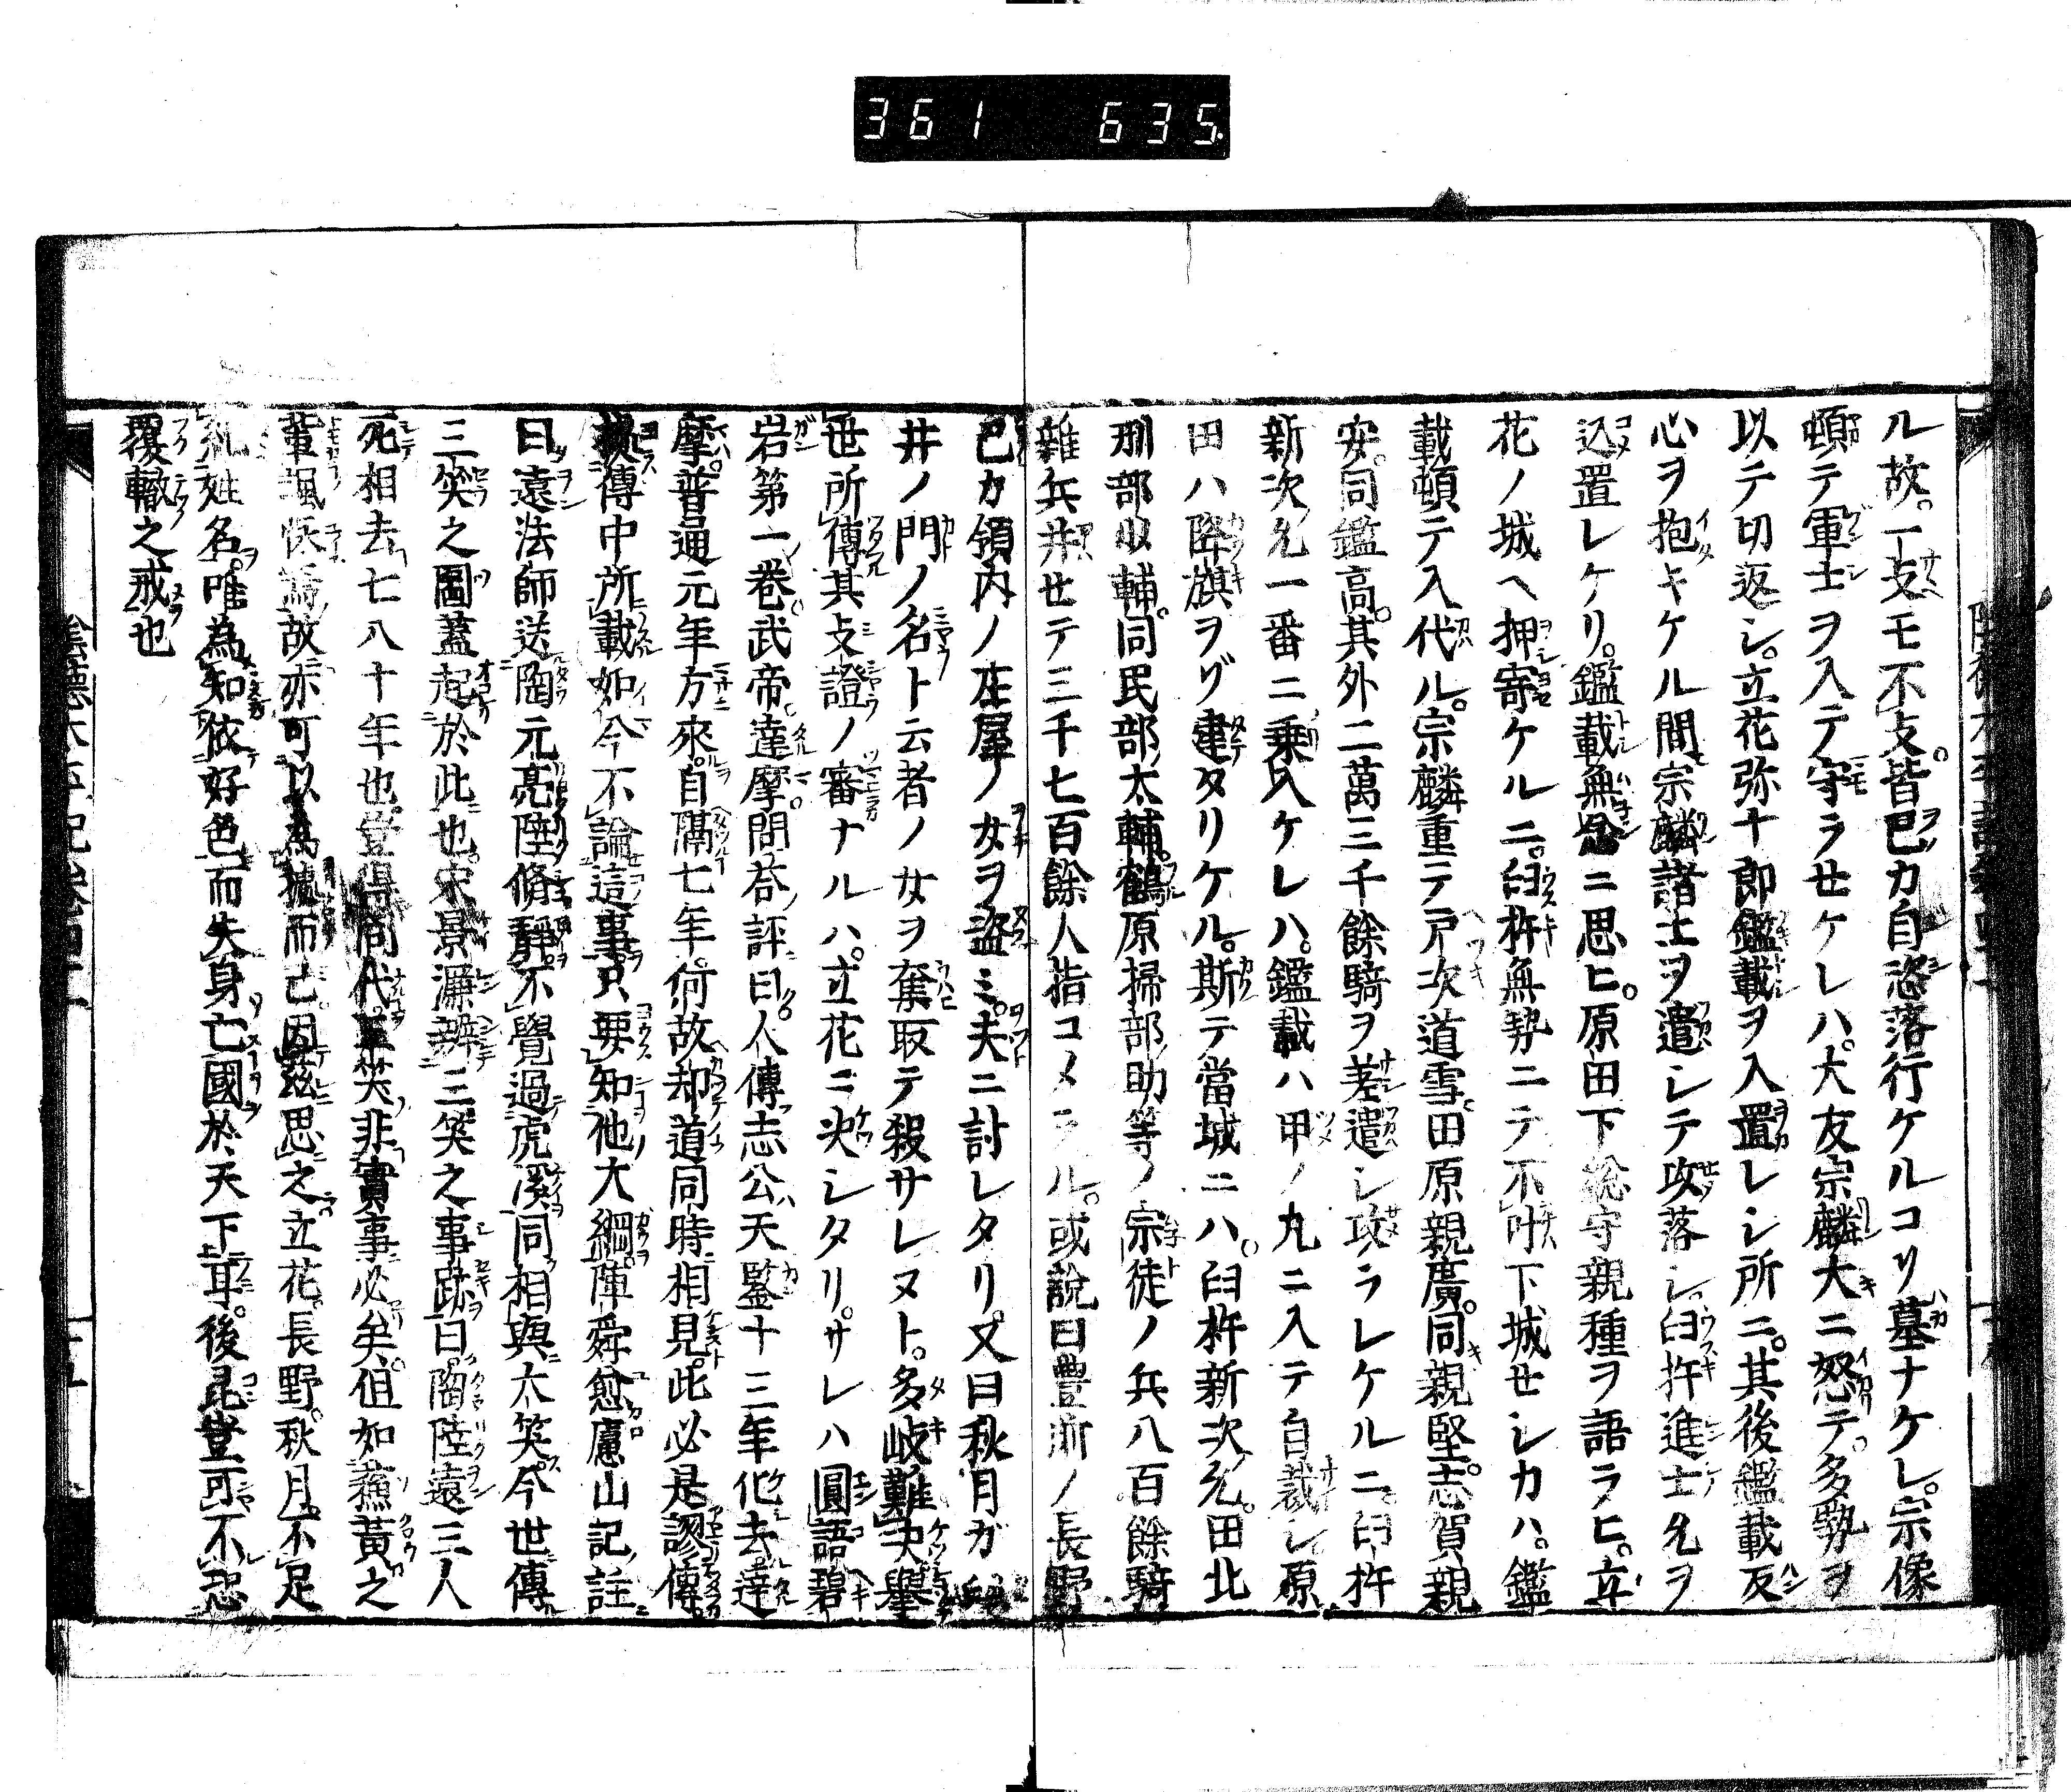 361 635
ル故。一支モ不支。皆已カ自恣落行ケルコソ墓ナケレ。宗像
頓テ軍士ヲ入テ守ラセケレハ。大友宗麟大ニ怒テ。多勢ヲ
以テ切返シ。立花弥十郎鑑載ヲ入置レシ所ニ。其後鑑載反
心ヲ抱キケル間宗麟諸士ヲ遣シテ攻落シ。臼杵進士允ヲ
込置レケリ。鑑載無念ニ思ヒ。原田下総守親種ヲ語ラヒ。立
花ノ城ヘ押寄ケルニ。臼杵無勢ニテ不叶下城セシカハ。鑑
載頓テ入代ル。宗麟重テ戸次道雪。田原親廣。同親堅。志賀親
安。同鑑高。其外二萬三千餘騎ヲ差遣シ攻ラレケルニ。臼杵
新次允一番ニ乗入ケレハ。鑑載ハ甲ノ丸ニ入テ自裁シ。原
田ハ降旗ヲゾ建タリケル。斯テ當城ニハ。臼杵新次允。田北
刑部少輔。同民部太輔。鶴原掃部助等ノ宗徒ノ兵八百餘騎
雜兵并セテ三千七百餘人指コメラル。或說曰豊浙ノ長野
已カ領内ノ庄屋ノ女ヲ盗ミ。夫ニ討レタリ。又曰秋月ガ
井ノ門ノ名ト云者ノ女ヲ奪取テ殺サレヌト。多岐難決舉
世所傳其支證ノ審ナルハ。立花ニ決シタリ。サレハ圓語碧
岩第一巻。武帝。達摩問答ノ評曰。人傳志公天鑒十三年化去達
摩。普通元年方來。自隔七年。何故却道同時相見。此必是謬傳
據傳中所載如今不論這事。只要知他大綱。陣舜愈廬山記註
曰。遠法師送陶元亮陸脩靜。不覺過虎溪。同相與大笑。今世傳
三笑之圖。蓋起於此也。宋景濂辨三笑之事跡曰。陶陸遠三人
死相去七八十年也。豈得同代。三笑非實事必矣。伹如蘓黄之
輩諷咏焉。故亦可以為據而已。因茲思之立花。長野。秋月。不足
糺姓名。唯為知依好色而失身亡國於天下耳。後昆豈可不恐
覆轍之戒也